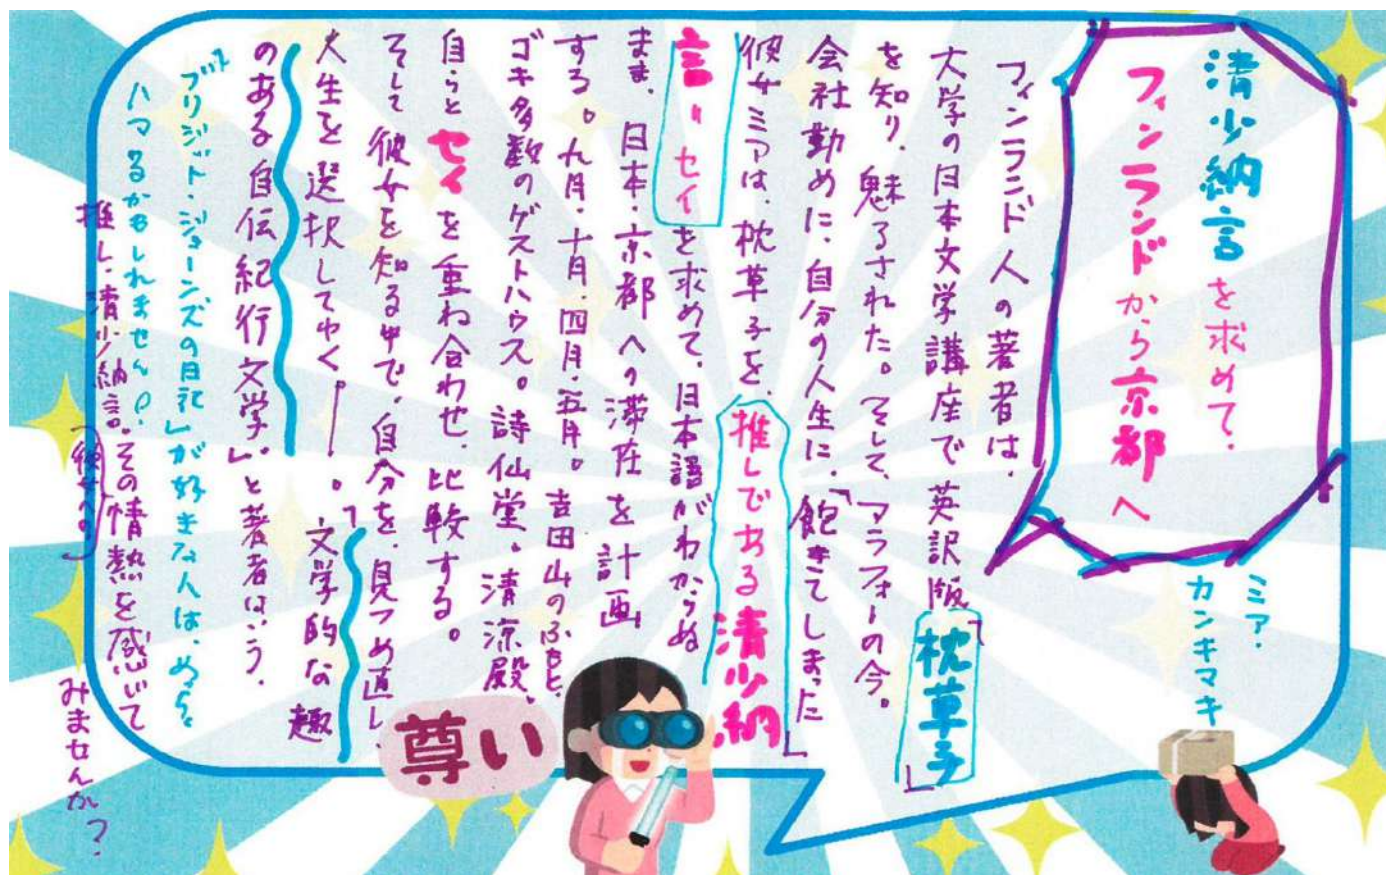 清少納言を求めて、
フィンランドから京都へ
ミア・
カンキマキ
フィンランド人の著者は、
大学の日本文学講座で英訳版「枕草子」
を知り、魅るされた。そして、アラフォーの今。
会社勤めに、自分の人生に、「飽きてしまった」
彼女ミアは、枕草子を、推しである清少納
言＝セイを求めて、日本語がわからぬ
まま、日本・京都への滞在を計画
する。九月・十月・四月・五月。吉田山のふもと、
ゴキ多数のゲストハウス。詩仙堂。清涼殿。
自らとセイを重ね合わせ、比較する。
そして彼女を知る中で、自分を、見つめ直し、
人生を選択してゆく――。「文学的な趣
のある自伝紀行文学」と著者はいう。
「ブリジット・ジョーンズの日記」が好きな人は、
ハマるかもしれません。
推し、清少納言。その情熱を感じて
(彼女への)
みませんか？
尊い